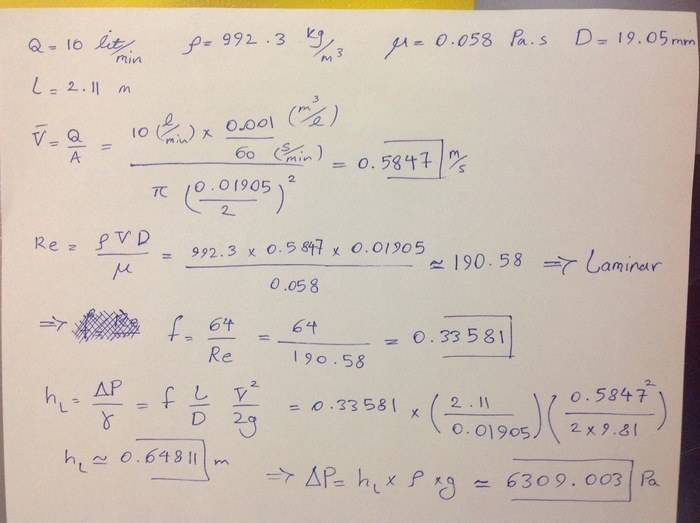 Q = 10 lit/min ρ = 992.3 kg/m³ μ = 0.058 Pa.s D = 19.05 mm
L = 2.11 m
V̄ = Q/A = (10 (l/min) × 0.001/60 (m³/l)/(s/min)) / (π (0.01905/2)²) = 0.5847 m/s
Re = ρV̄D/μ = (992.3 × 0.5847 × 0.01905)/0.058 ≃ 190.58 ⇒ Laminar
⇒ f = 64/Re = 64/190.58 = 0.33581
h_L = ΔP/γ = f L/D V̄²/2g = 0.33581 × (2.11/0.01905) (0.5847²/(2×9.81))
h_L ≃ 0.64811 m
⇒ ΔP = h_L × ρ × g ≃ 6309.003 Pa